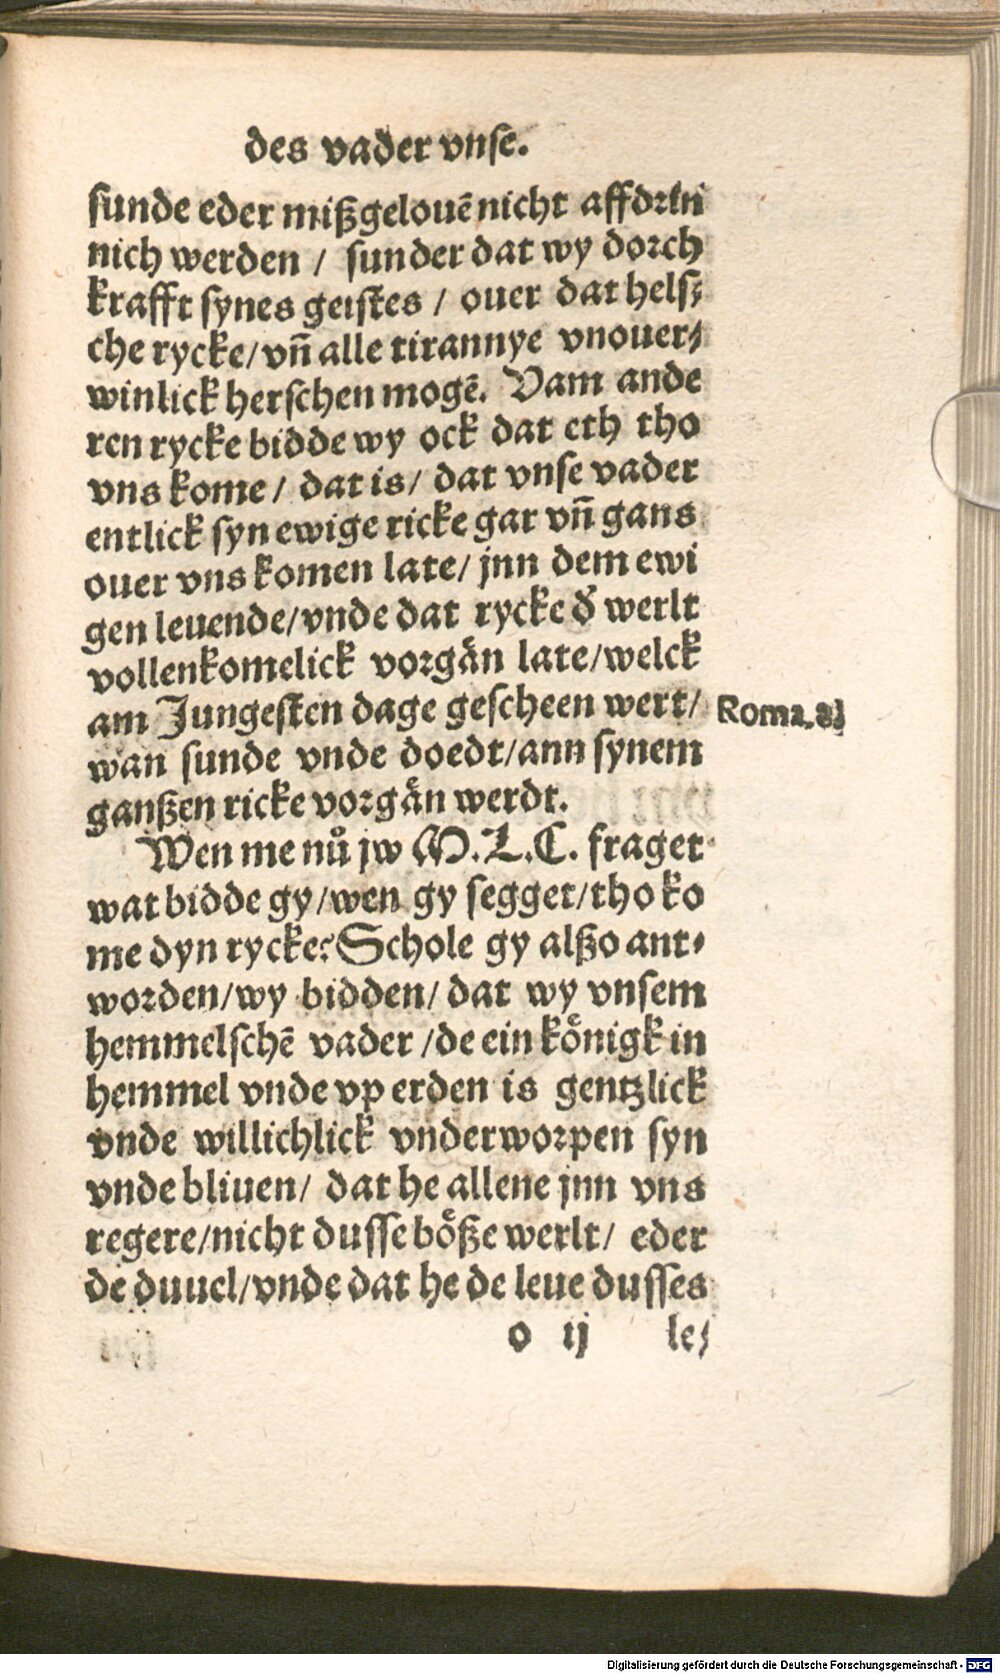 des vader vnse.
sunde eder mißgelouē nicht affdrīn
nich werden / sunder dat wy dorch
krafft synes geistes / ouer dat hels⸗
che rycke/vñ alle tirannye vnouer⸗
winlick herschen mogē. Vam ande
ren rycke bidde wy ock dat eth tho
vns kome/ dat is/ dat vnse vader
entlick syn ewige ricke gar vñ gans
ouer vns komen late/ jnn dem ewi
gen leuende/vnde dat rycke d̕ werlt
vollenkomelick vorgån late/welck
am Jungesten dage gescheen wert/
Roma. 8
wan sunde vnde doedt/ann synem
ganßen ricke vorgån werdt.
Wen me nů jw M.L.C. fraget
wat bidde gy/wen gy segget/tho ko
me dyn rycke? Schole gy alßo ant⸗
worden/wy bidden/ dat wy vnsem
hemmelschē vader /de ein kȯnigk in
hemmel vnde vp erden is gentzlick
vnde willichlick vnderworpen syn
vnde bliuen/ dat he allene jnn vns
regere/nicht dusse bȯße werlt/ eder
de duuel/vnde dat he de leue dusses
o ij le⸗
Digitalisierung gefördert durch die Deutsche Forschungsgemeinschaft - DFG